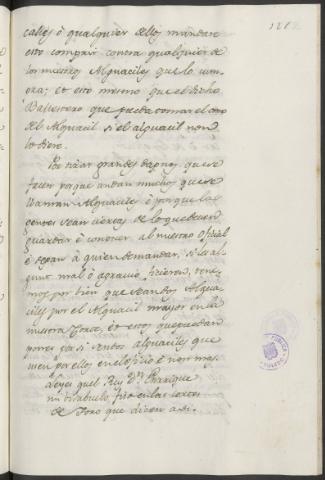 caldes ò qualquier dellos mandare
esto compair contra qualquier de
los nuestros Alguaciles que lo cum-
pra; et esto mesmo que el dicho
Ballestero que pueda tomar el
del Alguacil si el alguacil non
lo diere.
Por nòar grandes dapnos que se
facen porque andan muchos que se
llaman Alguaciles è porque las
gentes sean ciertas de lo que deven
guardar è conocer al nuestro Oficial
è sepan à quien demandar, si les al-
gunt mal ò agravio ficieren, tene-
mos por bien que sean dos Algua-
ciles por el Alguacil mayor en la
nuestra Corte, et estos que puedan
poner por si sendos alguaciles que
usen por ellos en el oficio è non mas.
Leyes quel Rey Dn. Enrrique
mi visabuelo fizo en las cortes
de Toro que dicen asi.